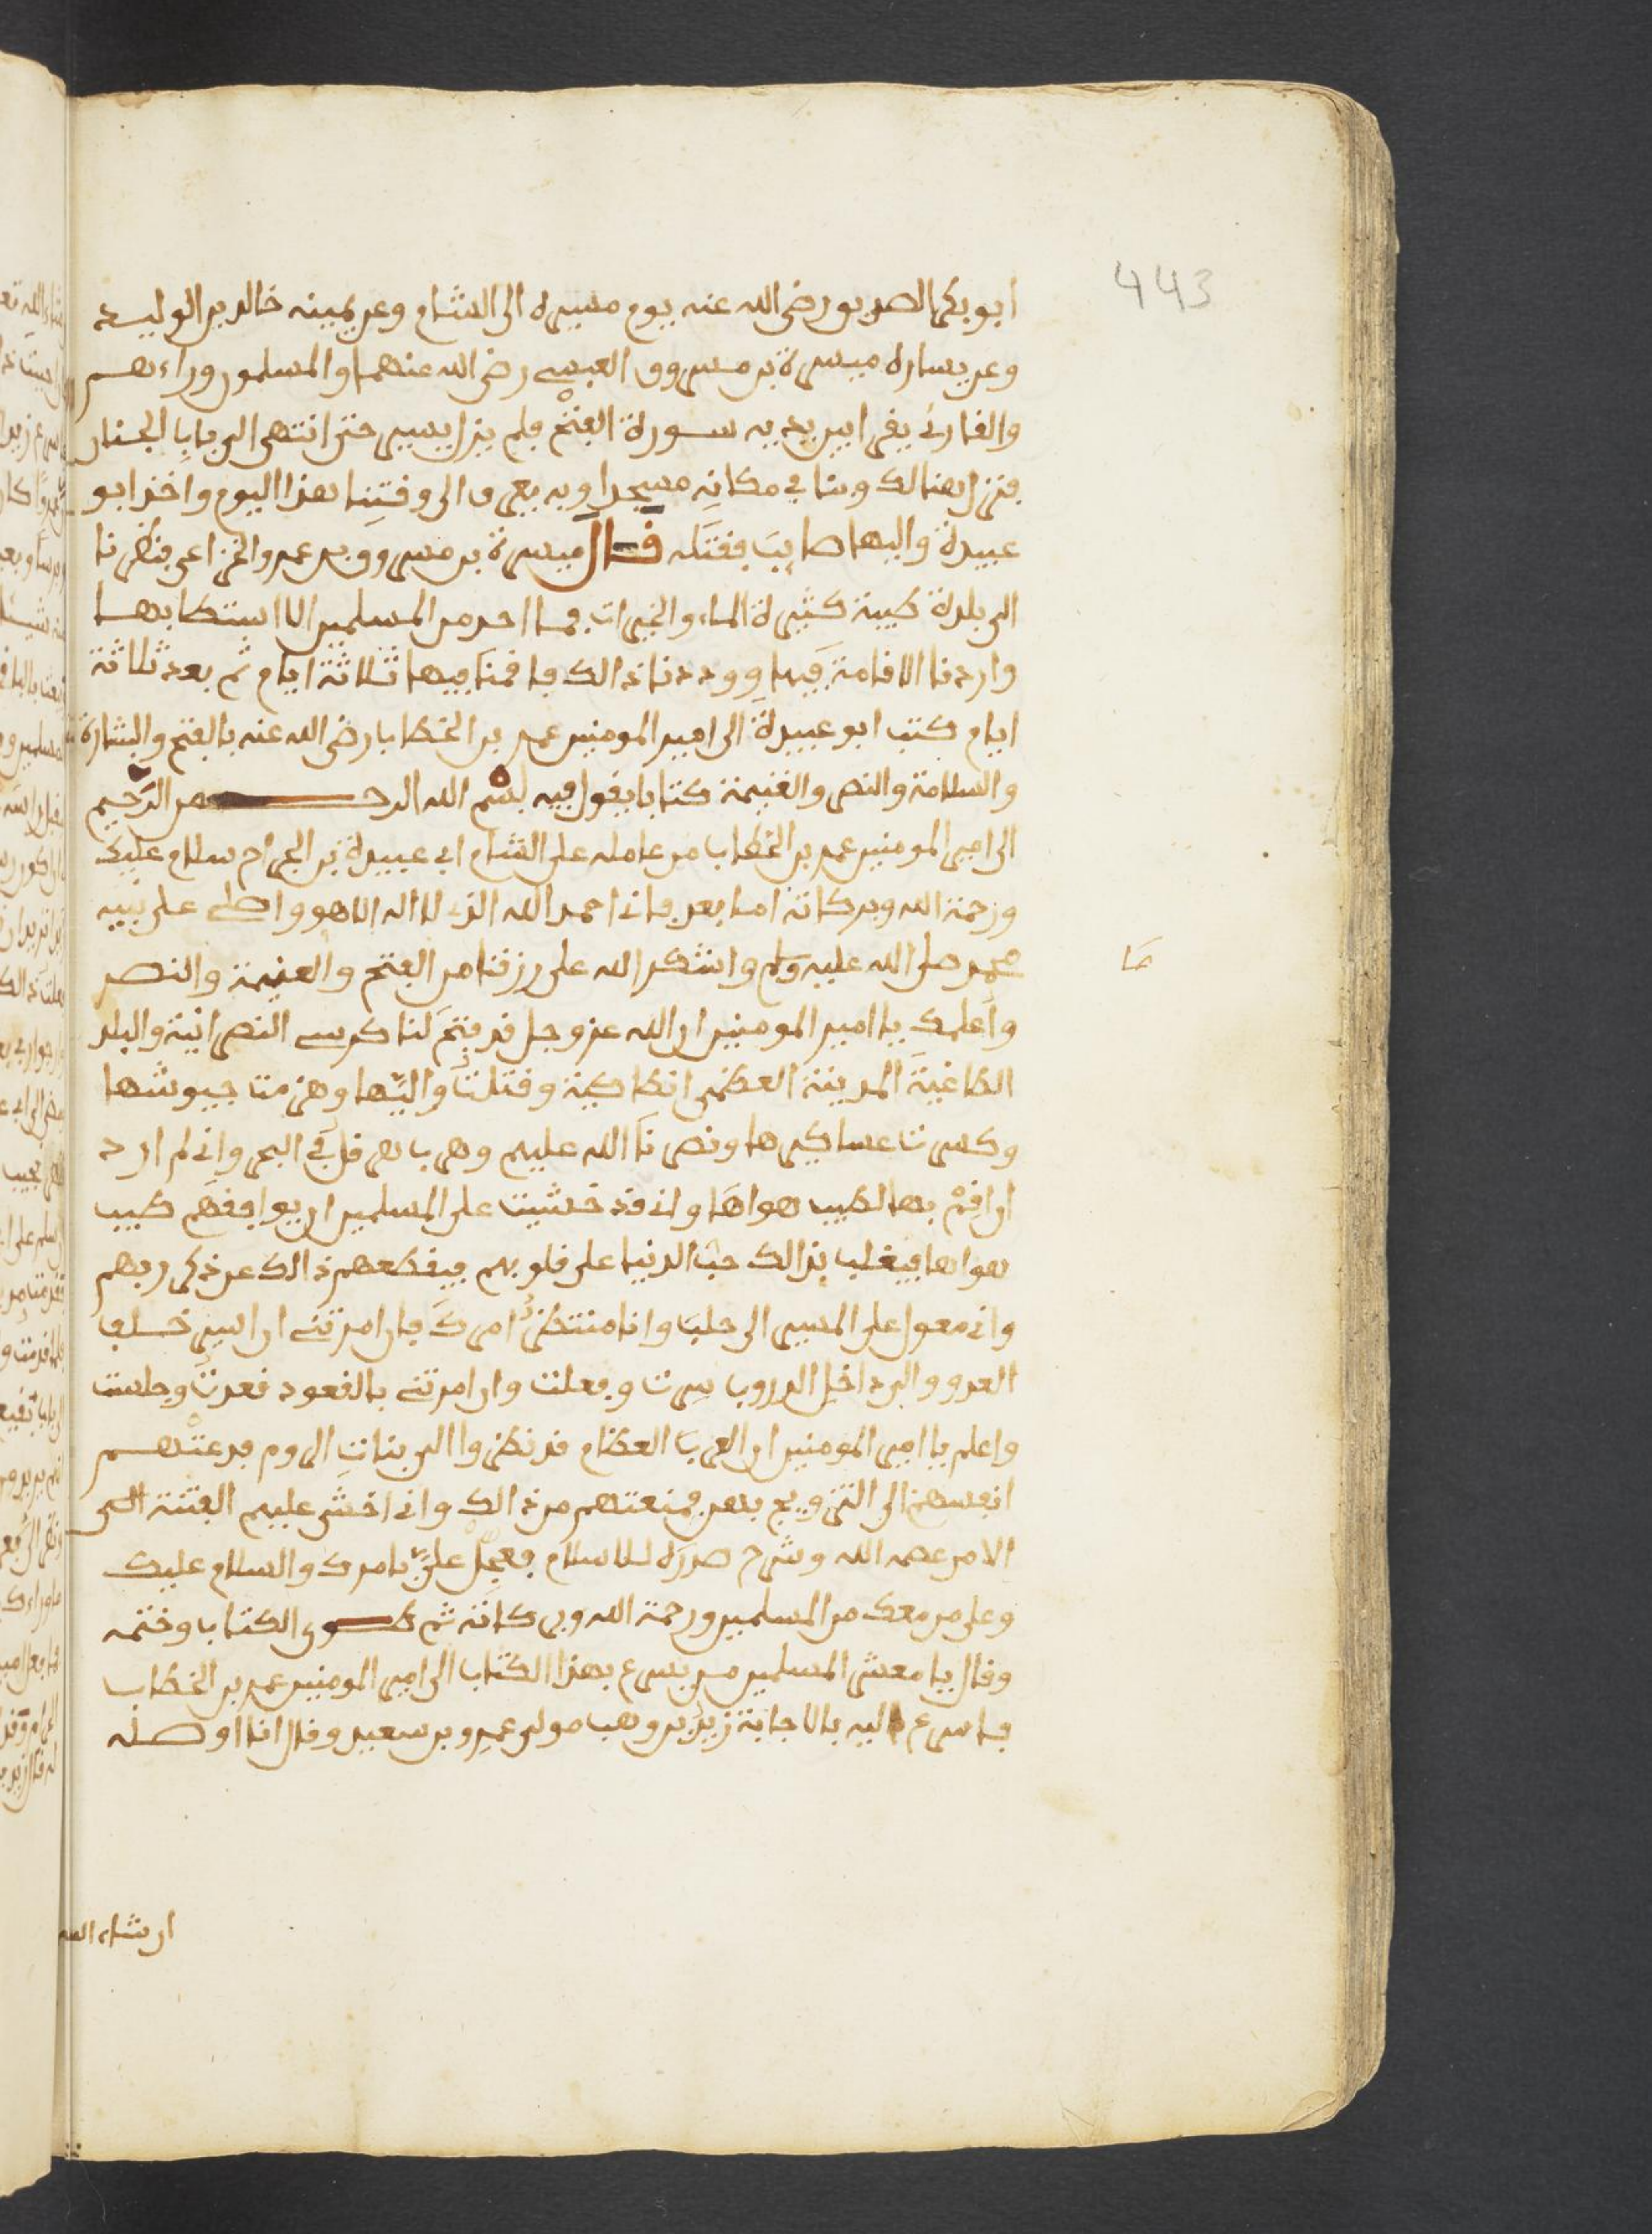 443
ابو بكر الصديق رضى الله عنه يوم مسيره الى الشام وعن يمينه خالد بن الوليد
وعن يساره ميسرة بن مسروق العبسي رضى الله عنهما والمسلمون وراءهم
والقارئ يقرا بين يديه سورة الفتح فلم يزل يسير حتى انتهى الى باب الجنان
فنزل هنالك وبنا في مكانه مسجدا وبه يعرف الى وقتنا هذا اليوم واخذ ابو
عبيدة واليها صايب فقتله قال ميسرة بن مسروق بن عمرو الخزاعى فنظرنا
الى بلدة طيبة كثيرة الماء والخيرات فما احد من المسلمين الا استطابها
واردنا الاقامة فيها ووددنا ذالك فاقمنا فيها ثلاثة ايام ثم بعد ثلاثة
ايام كتب ابو عبيدة الى امير المومنين عمر بن الخطاب رضى الله عنه بالفتح والبشارة
والسلامة والنصر والغنيمة كتابا يقول فيه بسم الله الرحمن الرحيم
الى امير المومنين عمر بن الخطاب من عامله على الشام ابى عبيدة بن الجراح سلام عليك
ورحمة الله وبركاته اما بعد فانى احمد الله الذي لا اله الا هو واصلى على نبيه
محمد صلى الله عليه وسلم واشكر الله على رزقنا من الفتح والغنيمة والنصر
ما
واعلمك يا امير المومنين ان الله عز وجل قد فتح لنا كرسي النصرانية والبلد
الطاغية المدينة العظمى انطاكية وقتلت واليها وهزمت جيوشها
وكسرت عساكرها ونصرنا الله عليهم وهرب هرقل في البحر وانى لم ارد
ان اقم بها لطيب هواها وانى قد خشيت على المسلمين ان يوافقهم طيب
هواها فيغلب بذالك حب الدنيا على قلوبهم فيقطعهم ذالك عن ذكر ربهم
وانى معول على المسير الى حلب وانا منتظر امرك فان امرتنى ان اسير خلف
العدو والى داخل الدروب سرت وفعلت وان امرتنى بالقعود قعدت وجلست
واعلم يا امير المومنين ان العرب العظام قد نظروا الى بنات الروم فدعتهم
انفسهم الى التزويج بهن فمنعتهم من ذالك وانى اخشى عليهم الفتنة الى
الامر عصمه الله وشرح صدره للاسلام فعجل على بامرك والسلام عليك
وعلى من معك من المسلمين ورحمة الله وبركاته ثم طوى الكتاب وختمه
وقال يا معشر المسلمين من يسرع بهذا الكتاب الى امير المومنين عمر بن الخطاب
فاسرع اليه بالاجابة زيد بن وهب مولى عمرو بن سعيد وقال انا اوصله
ان شاء الله